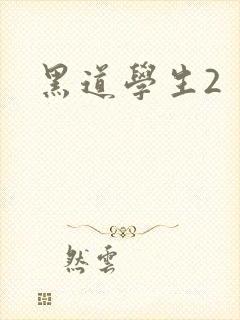 黑道學生2
然雲